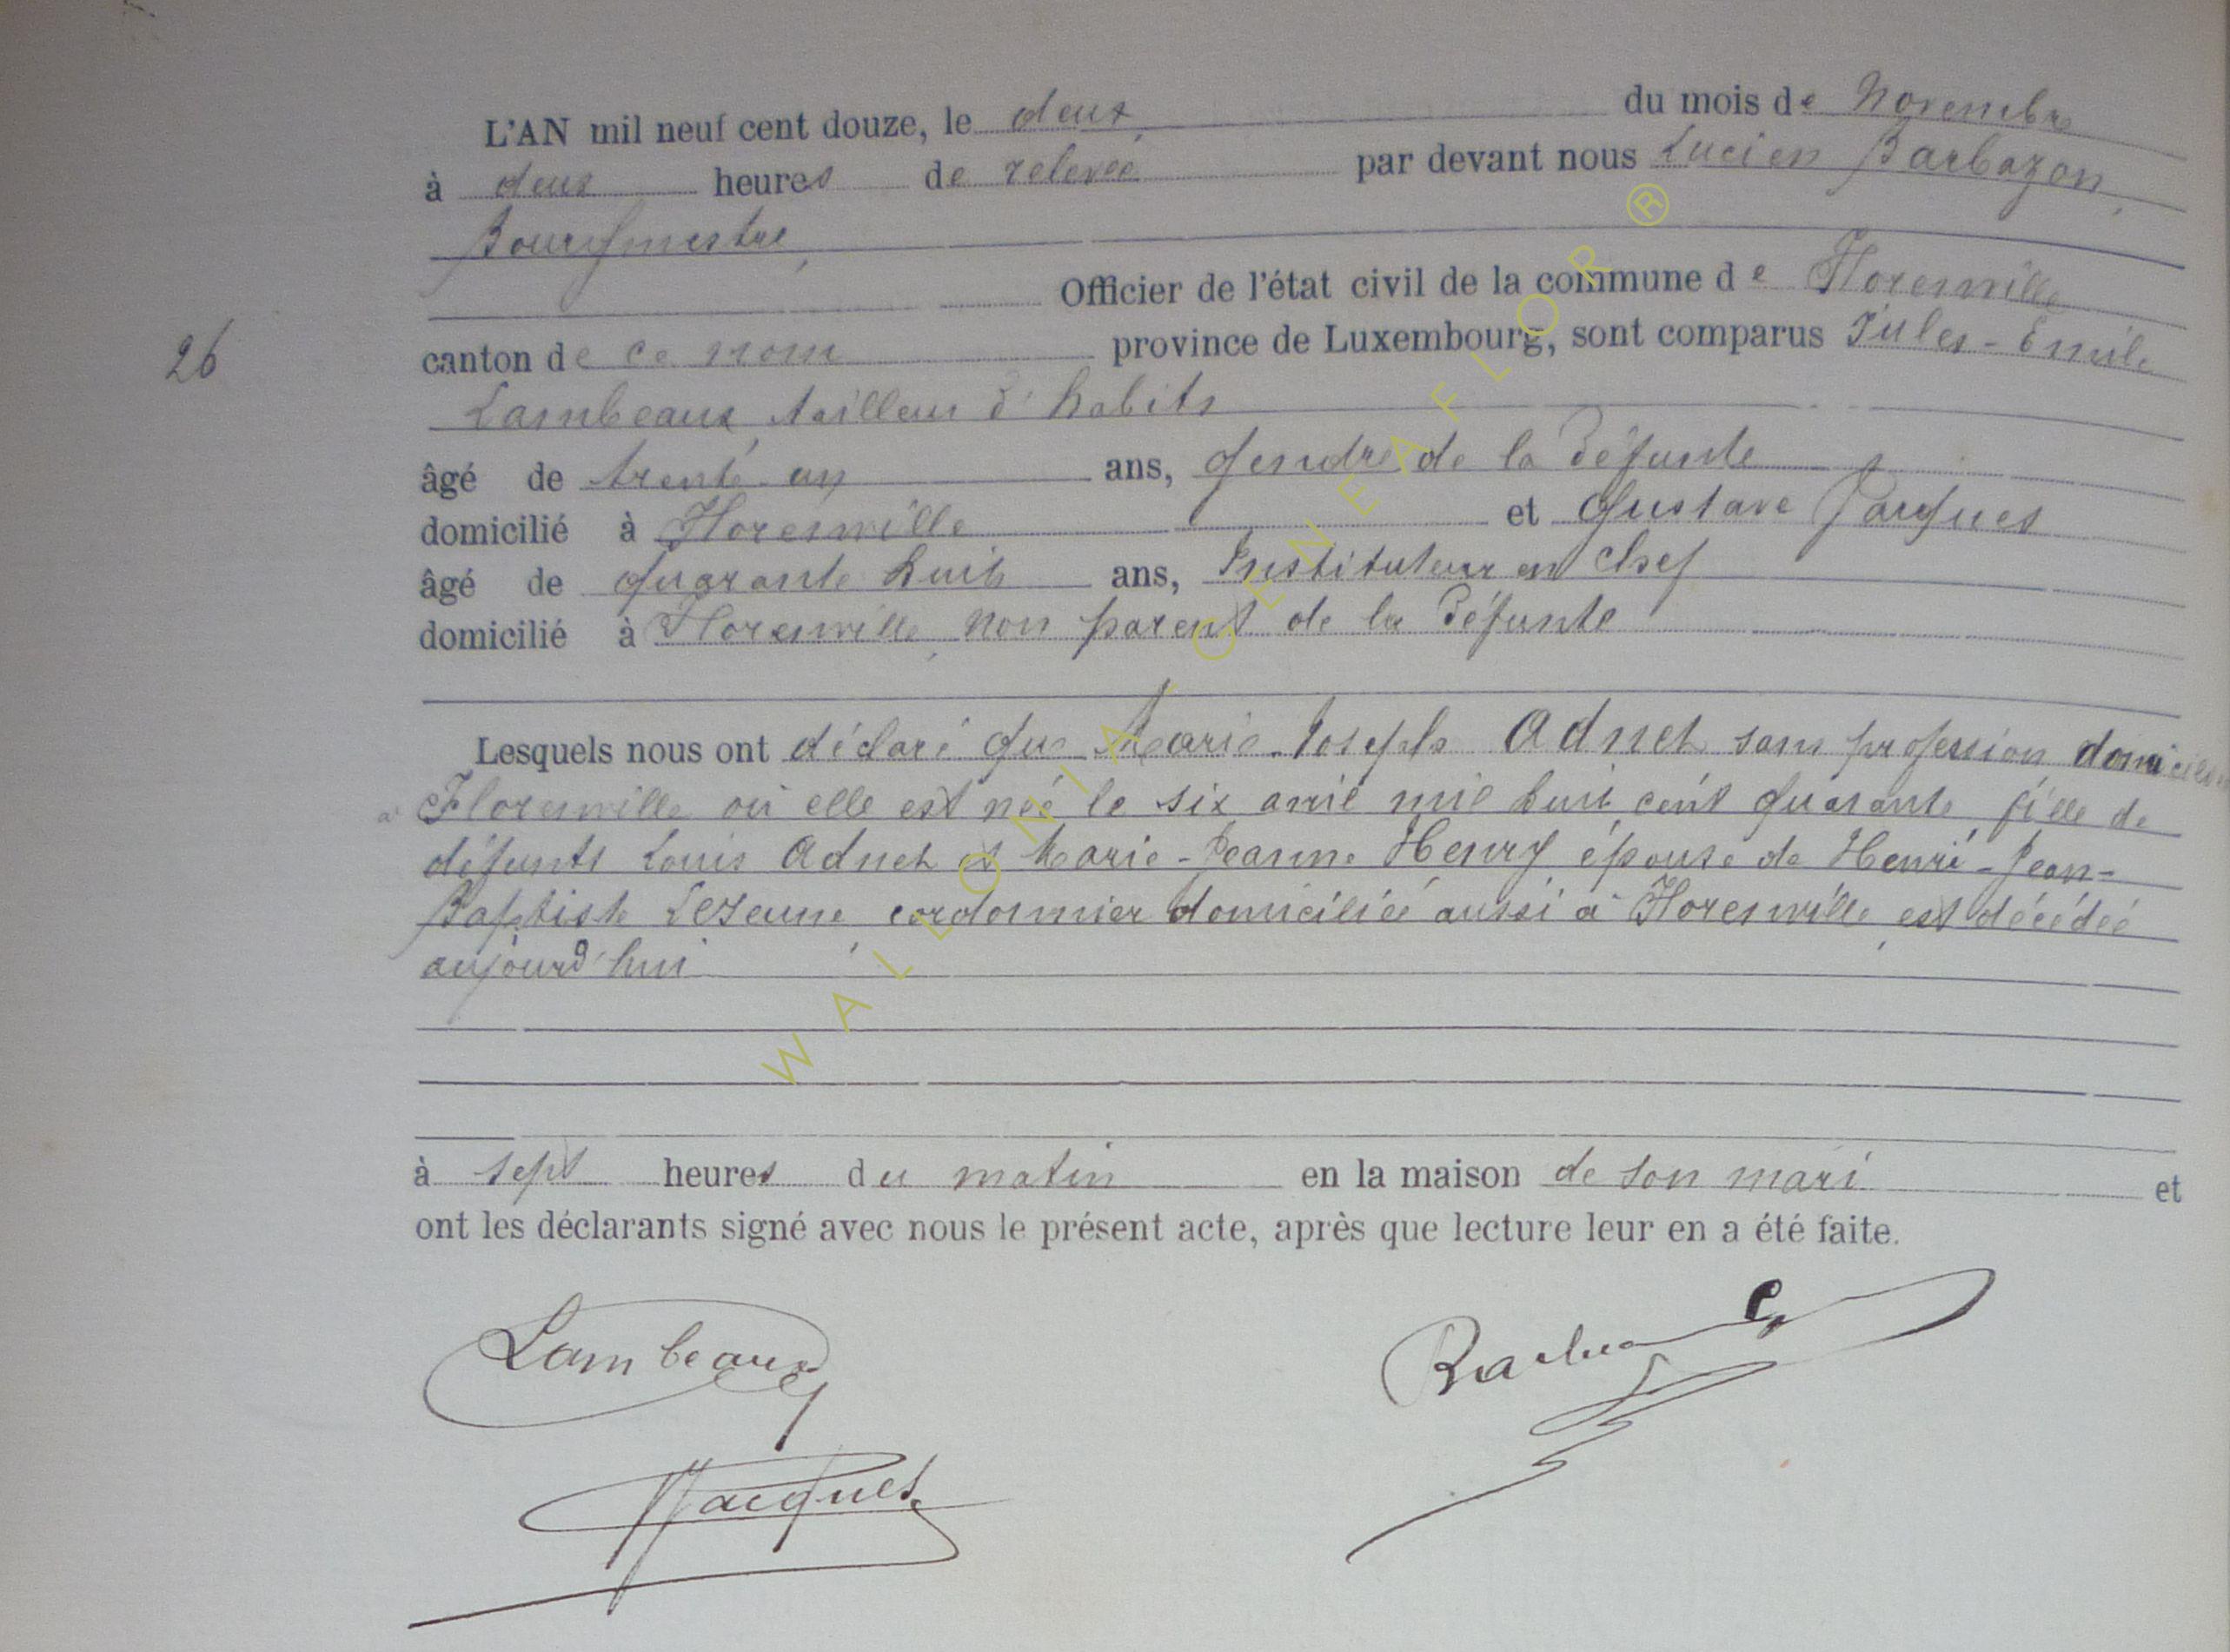 L'AN mil neuf cent douze, le deux, du mois de Novembre
à deux heures de relevée par devant nous Lucien Barbazon,
Bourgmestre,
Officier de l'état civil de la commune de Florenville
26 canton de ce nom province de Luxembourg, sont comparus Jules-Emile
Lambeaux, tailleur d'habits
âgé de trente-un ans, gendre de la défunte
domicilié à Florenville et Gustave Jacques
âgé de quarante huit ans, Instituteur en chef
domicilié à Florenville, non parent de la défunte
Lesquels nous ont déclaré que Marie-Joseph Adnet sans profession domiciliée
à Florenville où elle est née le six avril mil huit cent quarante fille de
défunts Louis Adnet et Marie-Jeanne Henry épouse de Henri-Jean-
Baptiste Lejeune, cordonnier domiciliée aussi à Florenville, est décédée
aujourd'hui
à sept heures du matin en la maison de son mari et
ont les déclarants signé avec nous le présent acte, après que lecture leur en a été faite.
Lambeaux
Jacques
WALLONIA GENEAFLOR ®